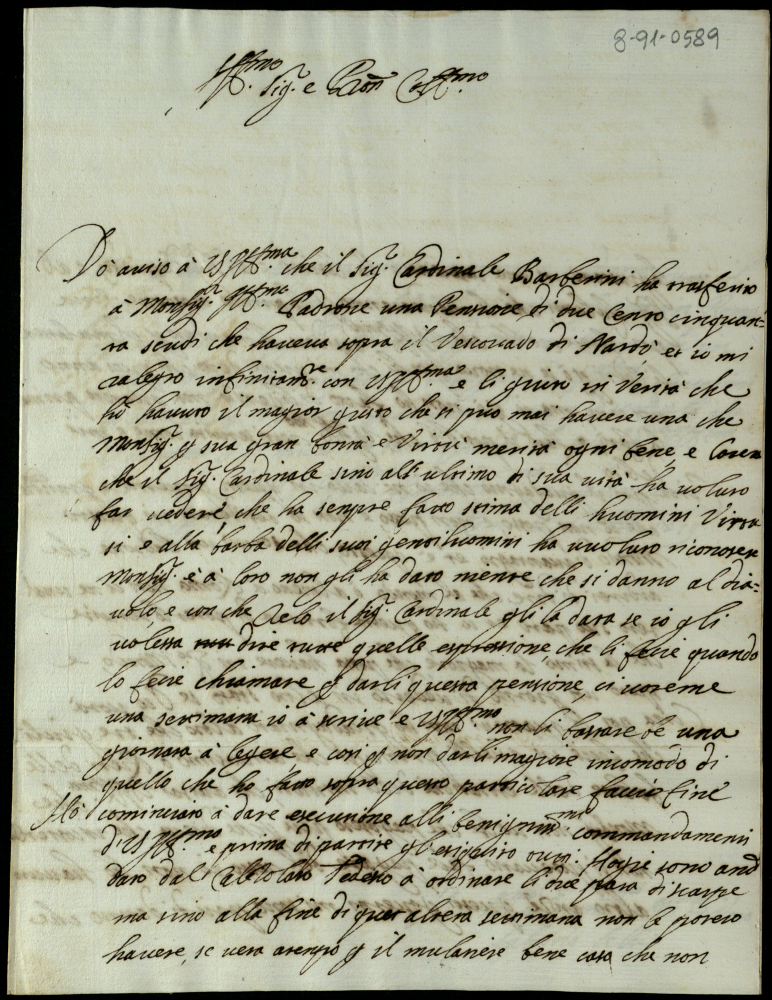 8-91-0589
Ill.mo Sig.r e Pron Coll.mo
Dò aviso à VS Ill.ma che il Sig.r Cardinale Barberini ha trasferito
à Monsig.r Ill.mo Padrone una Pensione di due Cento cinquan=
ta scudi che haveva sopra il Vescovado di Nardò, et io mi
ralegro infinitam.te con VS Ill.ma e li giuro in Verità che
hò havuto il magior gusto che si può mai havere una che
Monsig.r p sua gran bontà e Virtù merita ogni bene, e
che il Sig.r Cardinale sino all'ultimo di sua vita ha voluto
far vedere, che ha senpre fatto stima delli huomini Virtu
si e alla barba delli suoi gentilhuomini ha vuoluto riconosere
Monsig.r e à loro non gli ha dato niente che si danno al dia=
volo, e con che Zelo il Sig.r Cardinale gli la data se io gli
volessa dire tutte quelle espressione, che li fecie quando
lo fecie chiamare p darli questa pensione, ci voreme
una settimana io à scrive e VS Ill.ma non li bastare be una
giornata à legere, e così p non darli magiore incomodo di
quello che ho fatto sopra questo particolare faccio fine
Hò cominciato à dare esecutione alli benignis.mi commandamenti
d'VS Ill.ma e prima di partire Hogie sono and
dato dal Calzolaro Tedesco à ordinare li dua para di scarpe
ma sino alla fine di quest altera settimana non le potero
havere, se vera atenpo p il mulatiere bene casa che non